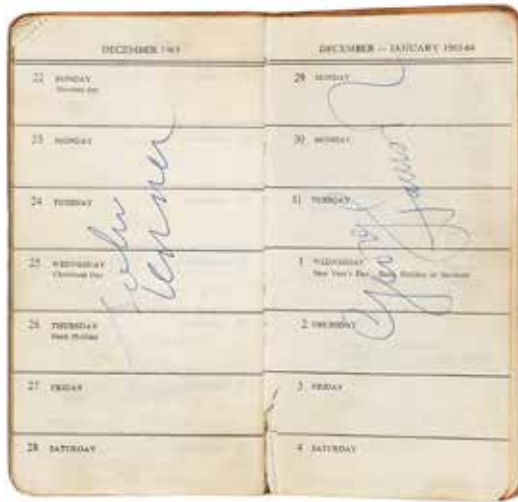 DECEMBER 1963
22 SUNDAY
23 MONDAY
24 TUESDAY
25 WEDNESDAY
Christmas Day
26 THURSDAY
Bank Holiday
27 FRIDAY
28 SATURDAY
John
DECEMBER — JANUARY 1963-64
29 SUNDAY
30 MONDAY
31 TUESDAY
1 WEDNESDAY
New Year's Day Bank Holiday in Scotland
2 THURSDAY
3 FRIDAY
4 SATURDAY